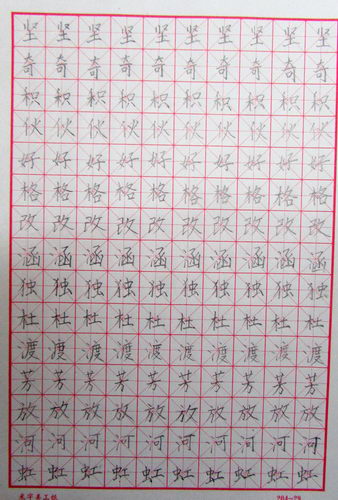 坚坚坚坚坚坚坚坚坚坚
奇奇奇奇奇奇奇奇奇奇
积积积积积积积积积积
伙伙伙伙伙伙伙伙伙伙
好好好好好好好好好好
格格格格格格格格格格
改改改改改改改改改改
涵涵涵涵涵涵涵涵涵涵
独独独独独独独独独独
杜杜杜杜杜杜杜杜杜杜
渡渡渡渡渡渡渡渡渡渡
芳芳芳芳芳芳芳芳芳芳
放放放放放放放放放放
河河河河河河河河河河
虹虹虹虹虹虹虹虹虹虹